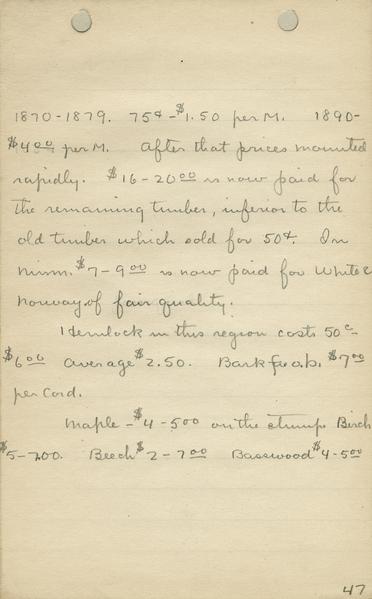 1870-1879. 75¢-$1.50 per M. 1890-
$4.00 per M. After that prices mounted
rapidly. $16-20.00 is now paid for
the remaining timber, inferior to the
old timber which sold for 50¢. In
Minn. $7-9.00 is now paid for White &
Norway of fair quality.
Hemlock in this region costs 50c-
$6.00 average $2.50. Bark f.o.b. $7.00
per Cord.
Maple - $4-5.00 on the stump Birch
$5-7.00. Beech $2-7.00 Basswood $4-5.00
47